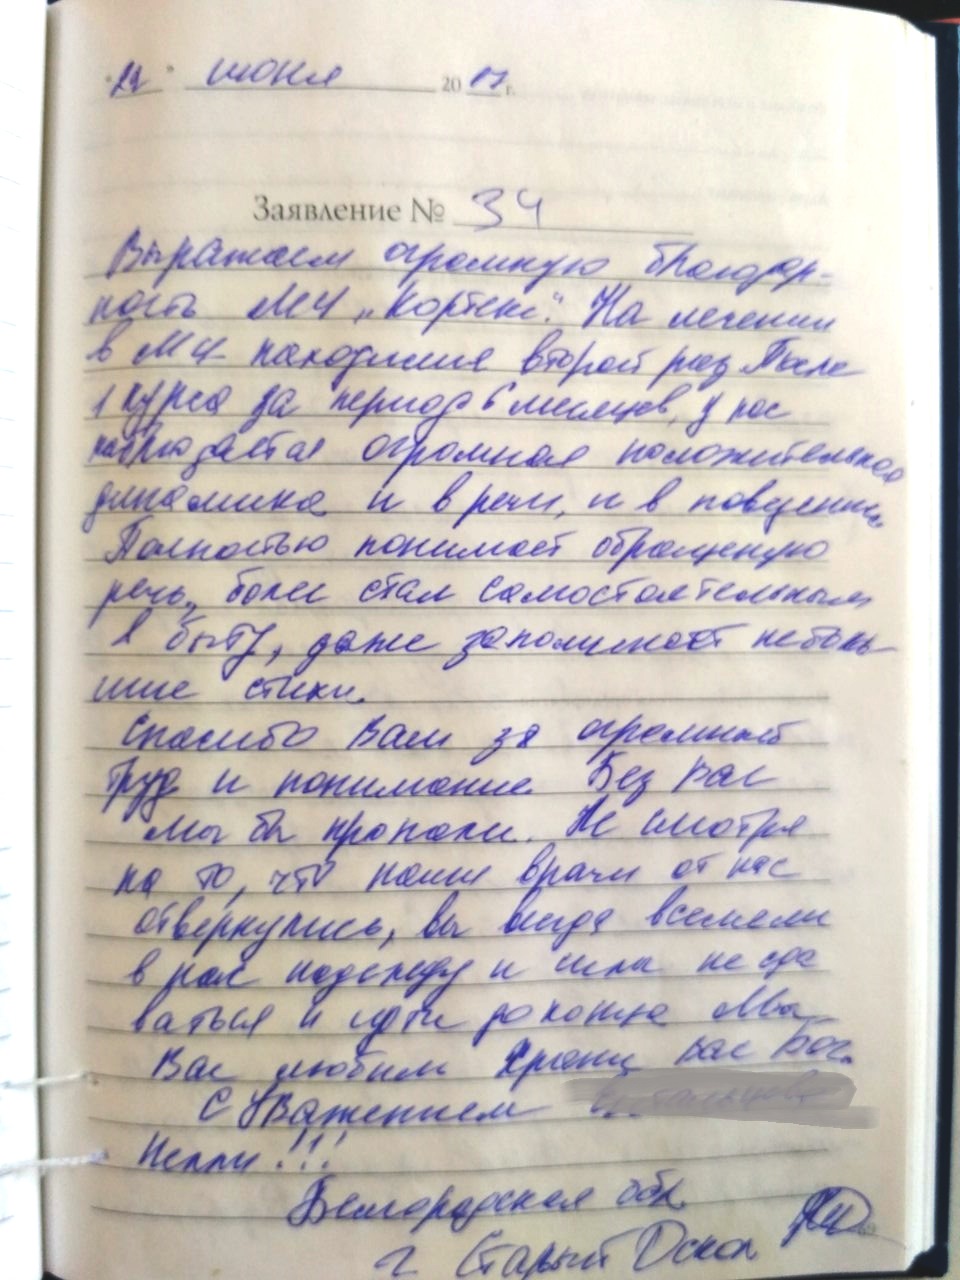 "22" июня 2017 г.
Заявление № 34
Выражаем огромную благодар-
ность МЦ „Кортекс". На лечении
в МЦ находимся второй раз. После
1 курса за период 6 месяцев, у нас
наблюдается огромная положительная
динамика и в речи, и в поведении
Полностью понимает обращенную
речь, более стал самостоятельным
в быту, даже запоминает неболь-
шие стихи.
Спасибо Вам за огромный
труд и понимание. Без Вас
мы бы пропали. Не смотря
на то, что наши врачи от нас
отвернулись, вы всегда вселяли
в нас надежду и силы не сда
ваться и идти до конца. Мы
Вас любим. Храни Вас Бог.
С Уважением
Нелли!!!
Белгородская обл.
г Старый Оскол